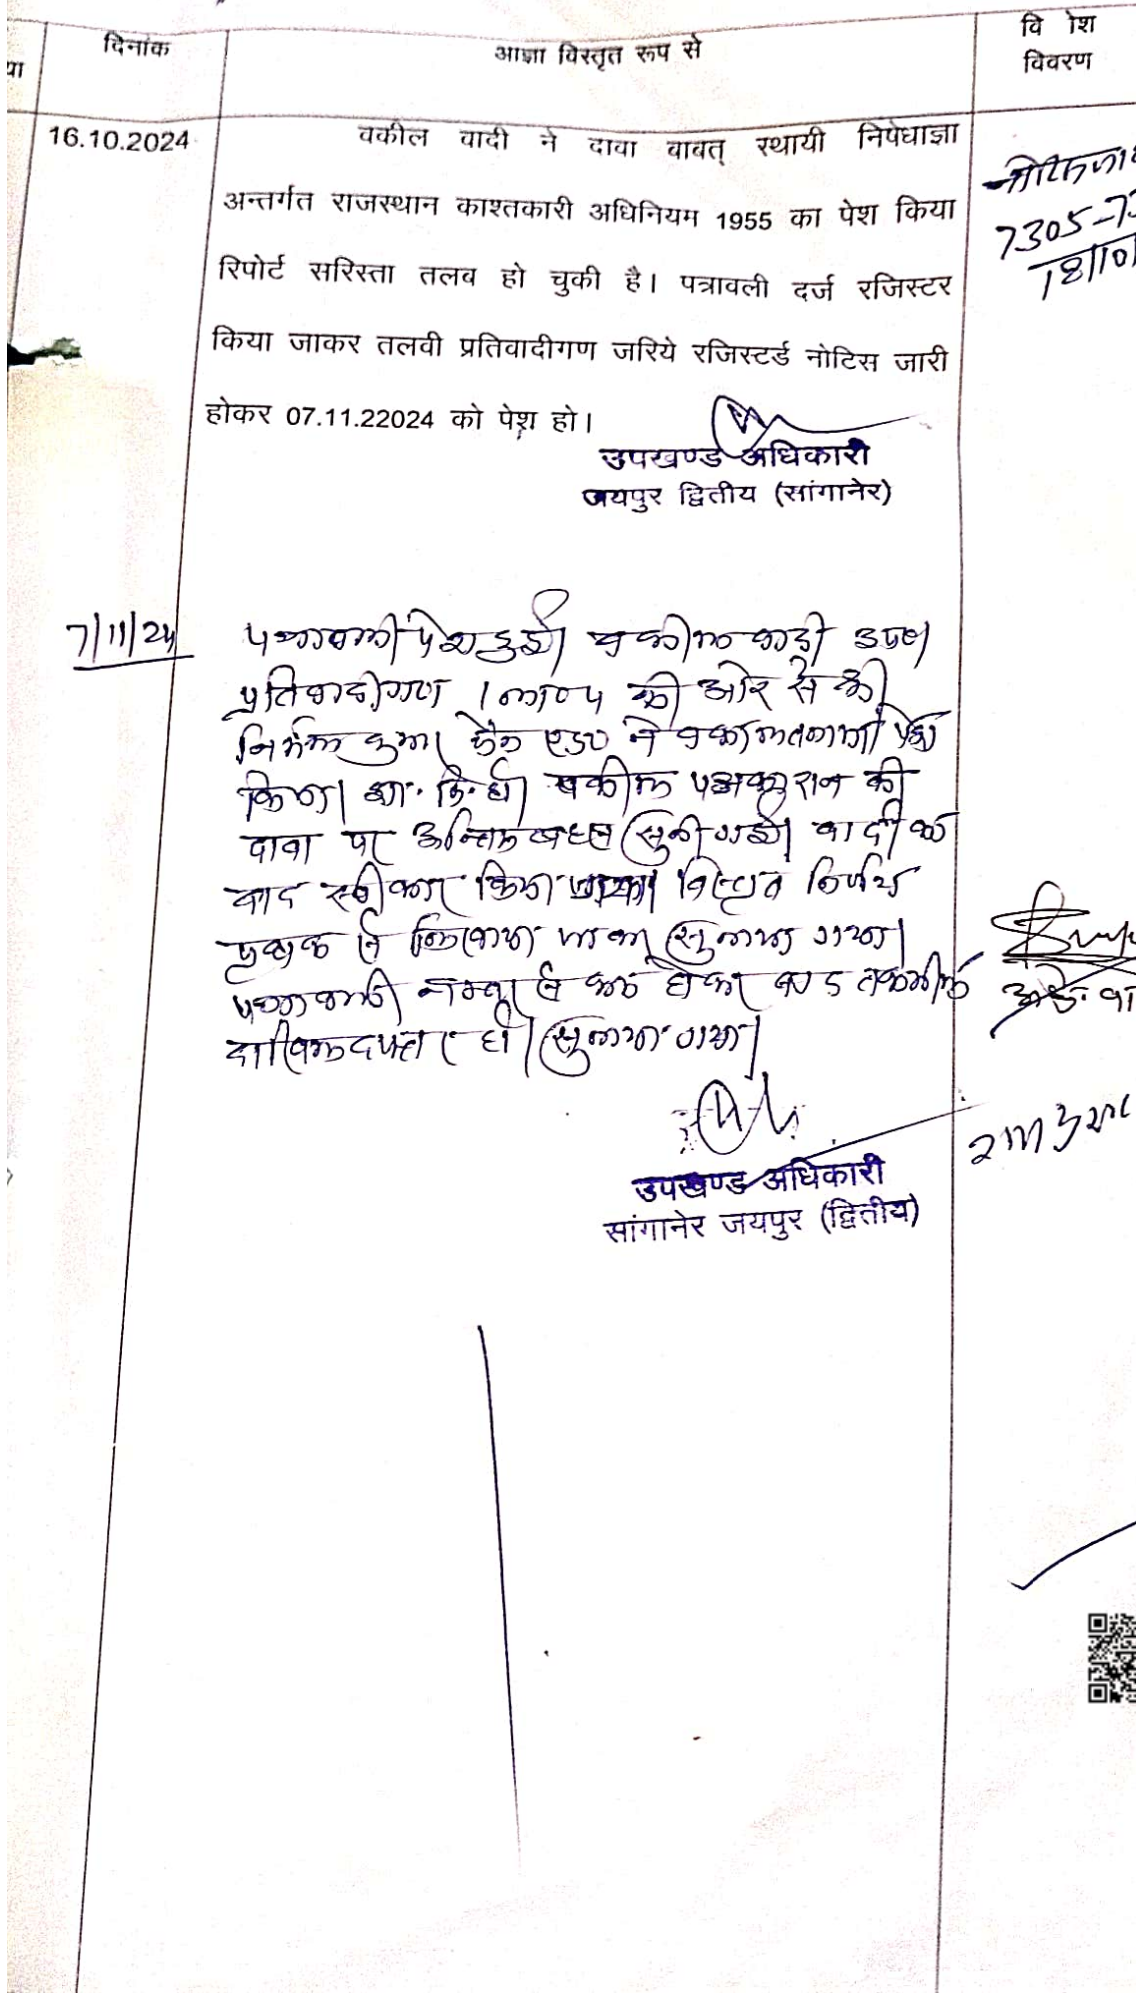 दिनांक
आज्ञा विस्तृत रूप से
वि ोश
विवरण
16.10.2024
वकील वादी ने दावा बाबत् स्थायी निषेधाज्ञा
अन्तर्गत राजस्थान काश्तकारी अधिनियम 1955 का पेश किया
रिपोर्ट सरिस्ता तलव हो चुकी है। पत्रावली दर्ज रजिस्टर
किया जाकर तलवी प्रतिवादीगण जरिये रजिस्टर्ड नोटिस जारी
होकर 07.11.22024 को पेश हो।
7305-7
18/10/
उपखण्ड अधिकारी
जयपुर द्वितीय (सांगानेर)
7/11/24
पत्रावली पेश हुई। वकील वादी उप०
प्रतिवादीगण 1 की ओर से श्री
निर्मल कुमार जैन एड० ने वकालतनामा पेश
किया। शा. मि. हो। वकील की
दावा पर अन्तिम बहस सुनी गई। वादी का
वाद स्वीकार किया जाकर विस्तृत निर्णय
पृथक से लिखाया जाकर सुनाया गया।
पत्रावली नम्बर से कम होकर बाद तकमील
दाखिल दफ्तर हो। सुनाया गया।
उपखण्ड अधिकारी
सांगानेर जयपुर (द्वितीय)